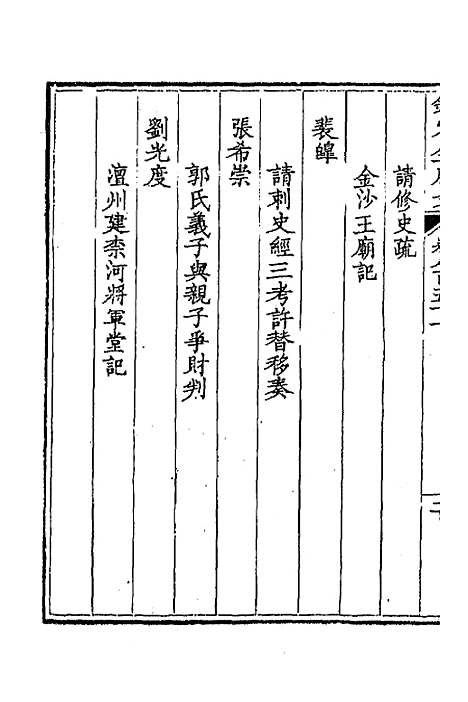 請修史疏
金沙王廟記
裴皞
請刺史經三考許替移奏
張希崇
郭氏義子與親子爭財判
劉光度
澶州建柰河將軍堂記